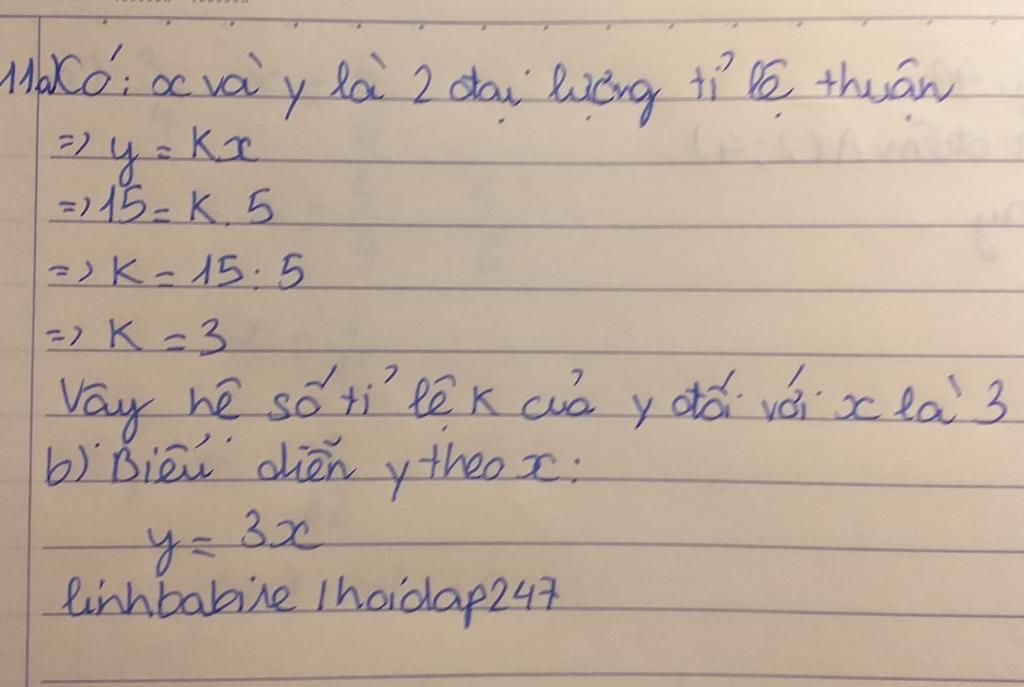 11a)Có: x và y là 2 đại lượng tỉ lệ thuận
=> y = Kx
=> 15 = K. 5
=> K = 15 : 5
=> K = 3
Vậy hệ số tỉ lệ K của y đối với x là 3
b) Biểu diễn y theo x:
y = 3x
linhbabire /hoidap247